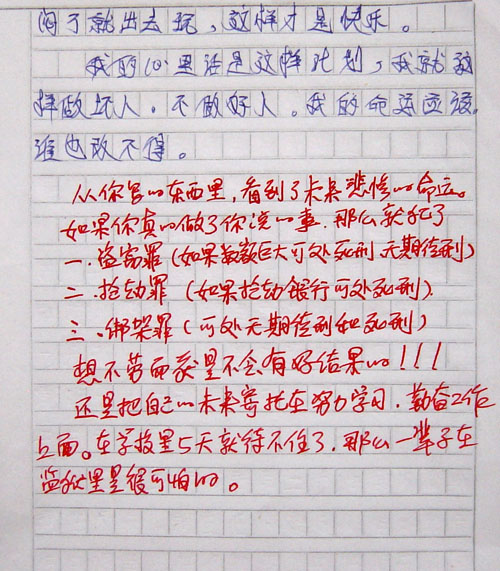 闷了就出去玩，这样才是快乐。
我的心里话是这样计划，我就这
样做坏人，不做好人。我的命运应该
谁也改不得。
从你写的东西里，看到了未来悲惨的命运。
如果你真的做了你说的事，那么就犯了
一、盗窃罪（如果数额巨大可处死刑 无期徒刑）
二、抢劫罪（如果抢劫银行可处死刑）
三、绑架罪（可处无期徒刑和死刑）
想不劳而获是不会有好结果的！！！
还是把自己的未来寄托在努力学习，勤奋工作
上面。在学校里5天就待不住了，那么一辈子在
监狱里是很可怕的。